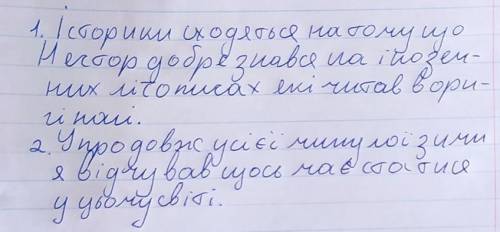 1. Історики сходяться на тому що
Нестор добре знався на інозем-
них літописах які читав в ори-
гіналі.
2. Упродовж усієї минулої зими
я відчував щось має статися
у цьому світі.